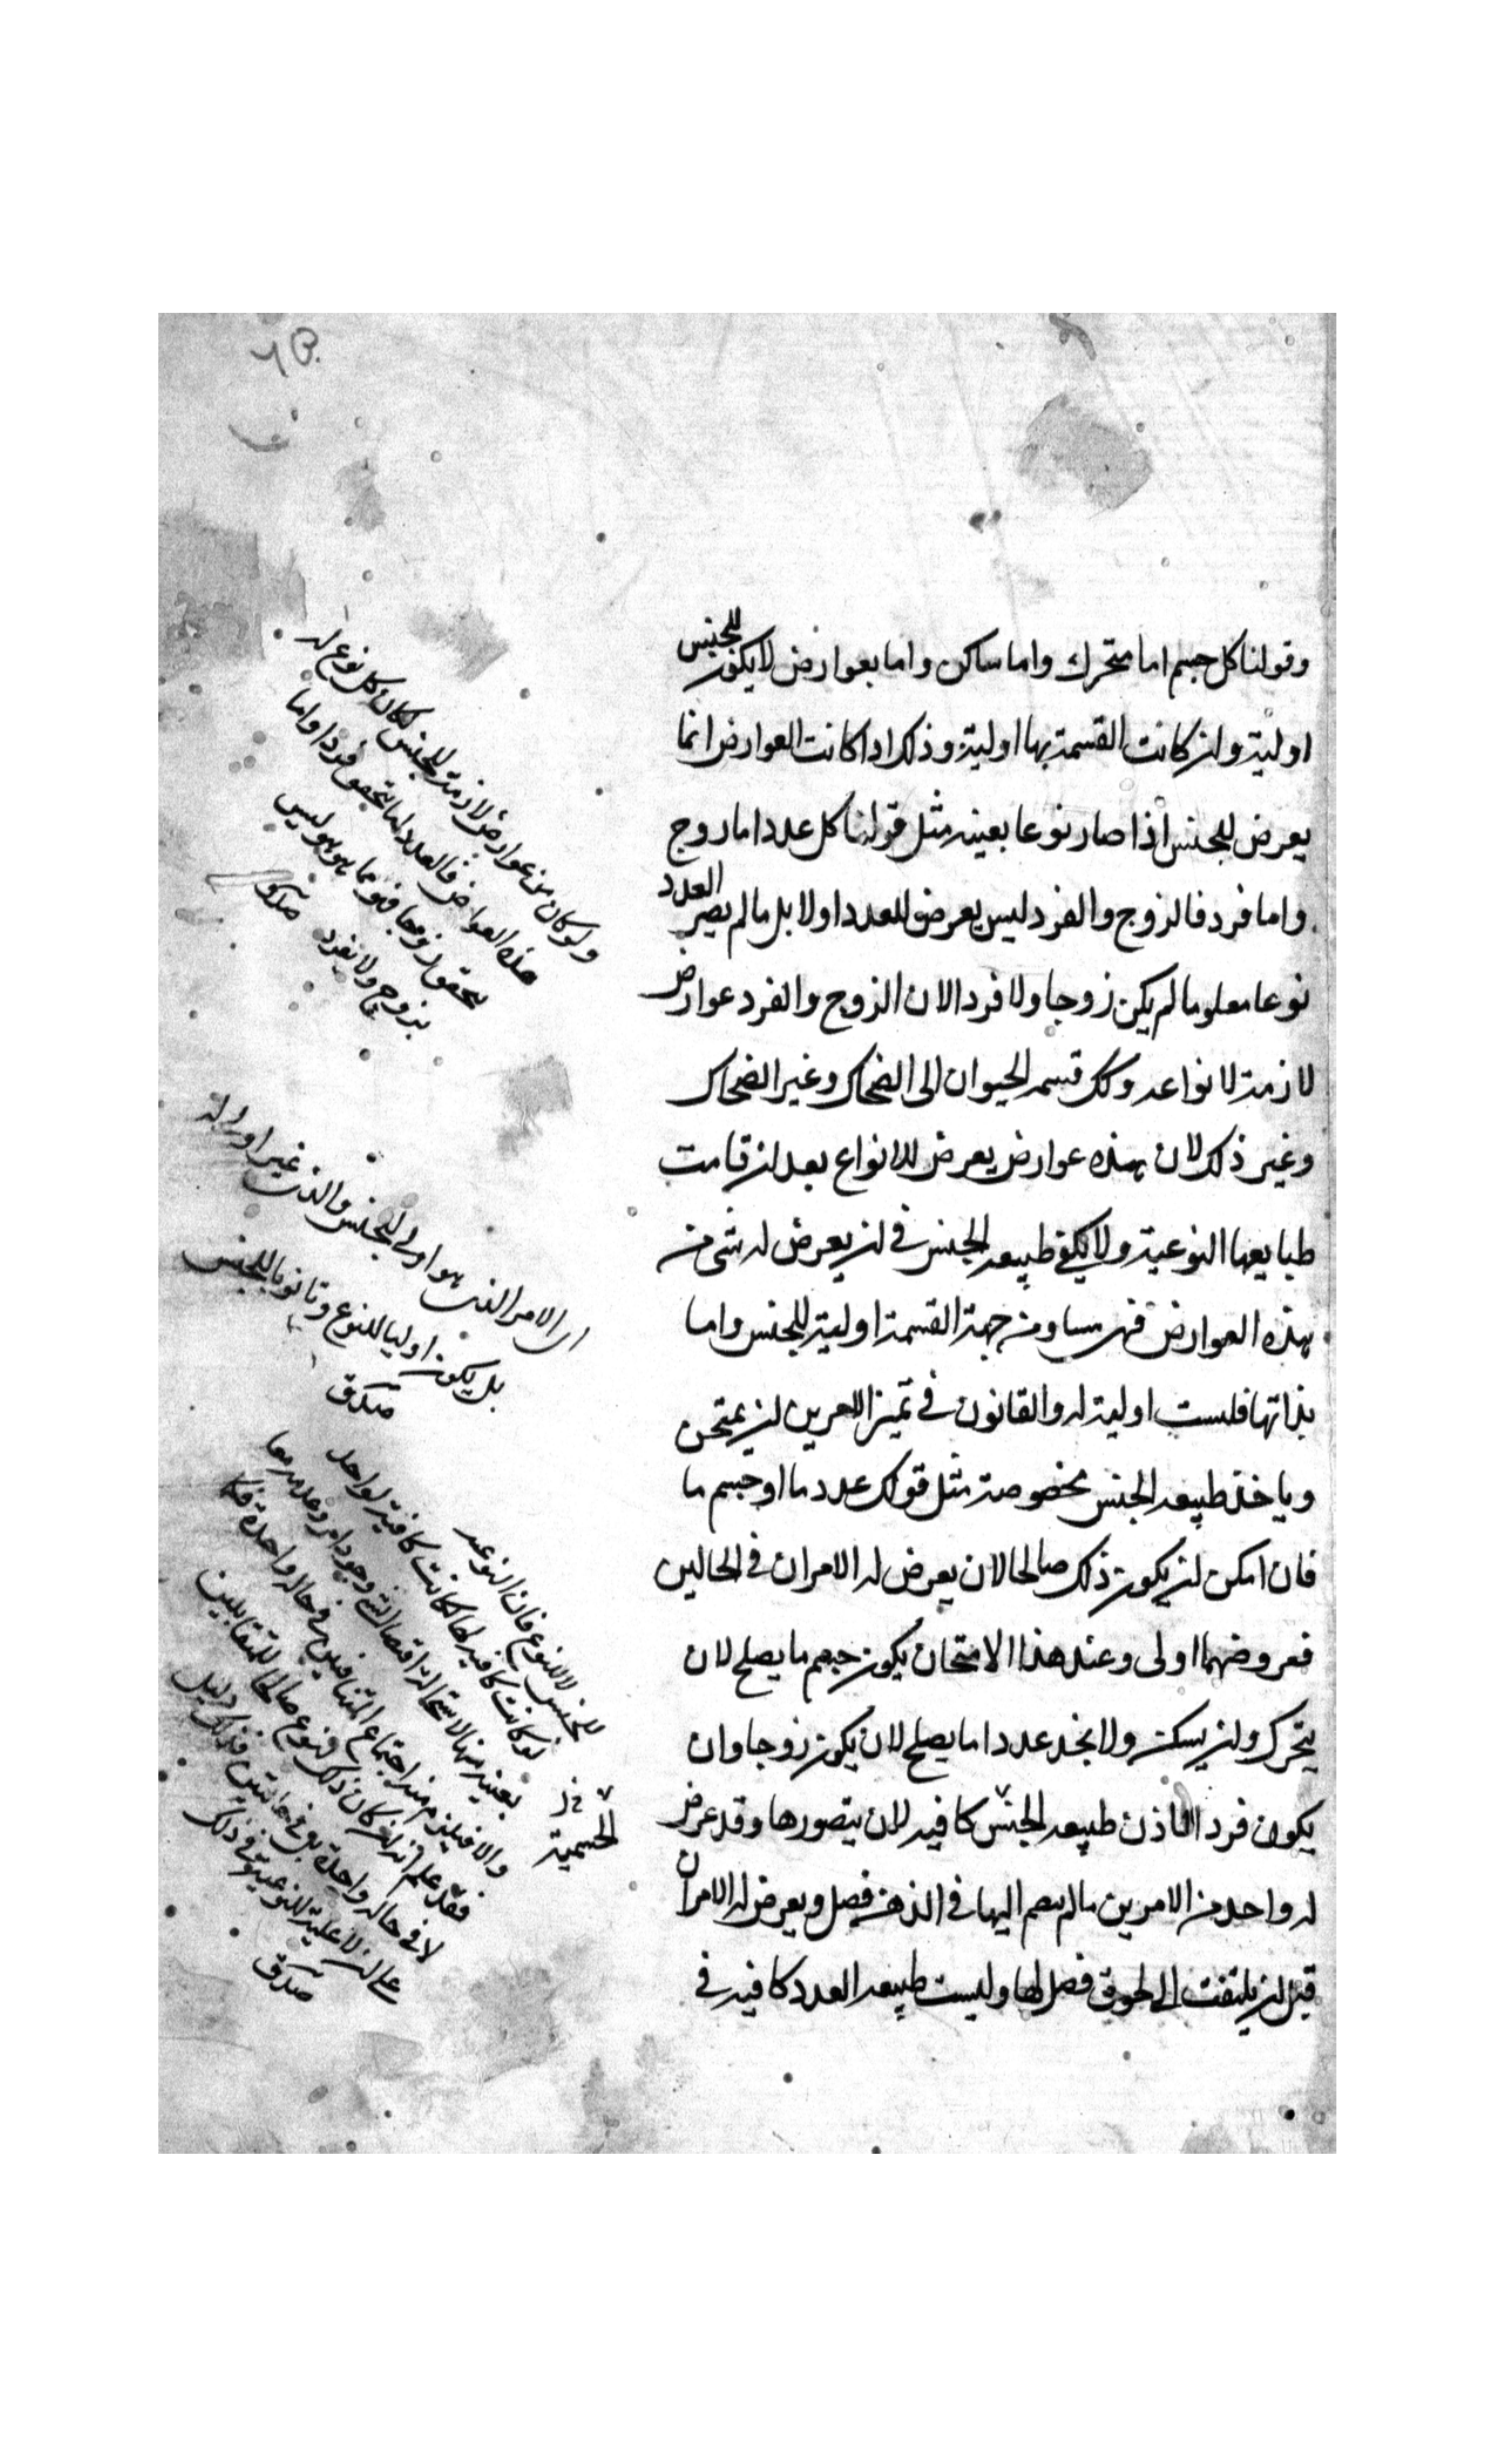 وقولنا كل جسم اما متحرك واما ساكن واما بعوارض لا يكون للجنس
اولية وان كانت القسمة بها اولية وذلك اذا كانت العوارض انما
يعرض للجنس اذا صار نوعا بعينه مثل قولنا كل عدد اما زوج
واما فرد فالزوج والفرد ليس يعرض للعدد اولا بل ما لم يصر العدد
نوعا معلوما لم يكن زوجا ولا فردا لان الزوج والفرد عوارض
لازمة لانواعه وكك قسمه الحيوان الى الضحاك وغير الضحاك
وغير ذلك لان هذه عوارض يعرض للانواع بعد ان قامت
طبايعها النوعية ولا يكفي طبيعه الجنس في ان يعرض له شئ من
هذه العوارض فهى من جهة القسمة اولية للجنس واما
بذاتها فليست اولية له والقانون في تميز الامرين ان يمتحن
وياخذ طبيعه الجنس مخصوصة مثل قولك عدد ما او جسم ما
فان امكن ان يكون ذلك صالحا لان يعرض له الامران في الحالين
فعروضهما اولى وعند هذا الامتحان يكون جسم ما يصلح لان
يتحرك وان يسكن ولا نجد عددا ما يصلح لان يكون زوجا وان
يكون فردا فاذن طبيعه الجنس كافيه لان يتصورها وقد عرض
له واحد من الامرين ما لم يضم اليها في الذهن فصل ويعرض له الامران
قبل ان يلتفت الى لحوق فصل لها وليست طبيعه العدد كافيه في
ولو كان من عوارض لازمة للجنس لكان كل نوع له
هذه العوارض فالعدد اما يتحقق فردا واما
يتحقق زوجا فنوعا هو هو ليس
بزوج ولا بفرد
الامر الذى هو اولى للجنس والذى غير اولى له
بل يكون اوليا للنوع وثانويا للجنس
للجنس لا للنوع فان النوعيه
لو كانت كافيه لها لكانت كافية لواحد
بعينه منها لاستحالة اقتضاء الشئ وجود امر وعدمه معا
والا فيلزم منه اجتماع المتنافيين في حالة واحدة
فقد علم انه ان كان ذلك النوع صالحا للمتقابلين
لا في حالة واحدة بل في حالتين فذلك دليل
على ان لا علية للنوعية في ذلك
الجسمية